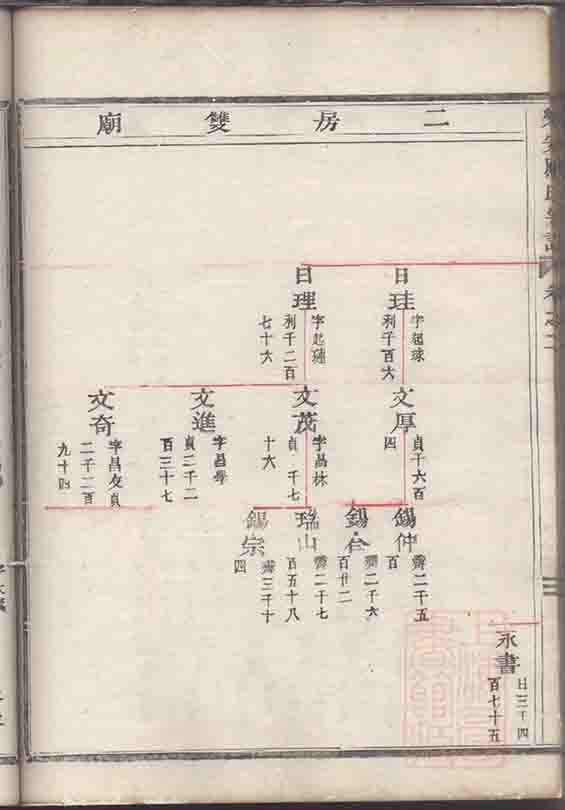 二房雙廟
永書
日三千四
百七十五
日珪
字起球
利千百六
文厚
貞千六百
四
錫仲
霽二千五
百
錫
霽二千六
百廿二
日理
字起
利千二百
七十六
文茂
字昌林
貞千七
十六
瑞山
霽二千七
百五十八
錫宗
霽三千十
四
文進
字昌學
貞二千二
百三十七
文奇
字昌文貞
二千二百
九十四